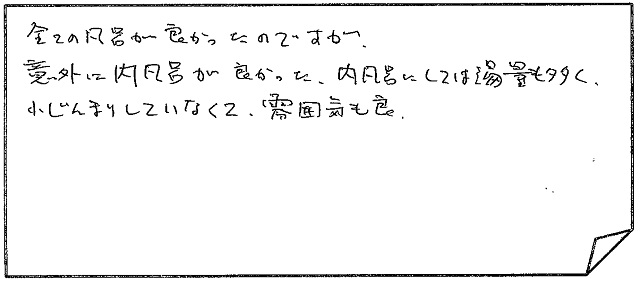 全ての風呂が良かったのですが、
意外に内風呂が良かった、内風呂にしては湯量も多く、
小じんまりしていなくて、雰囲気も良。